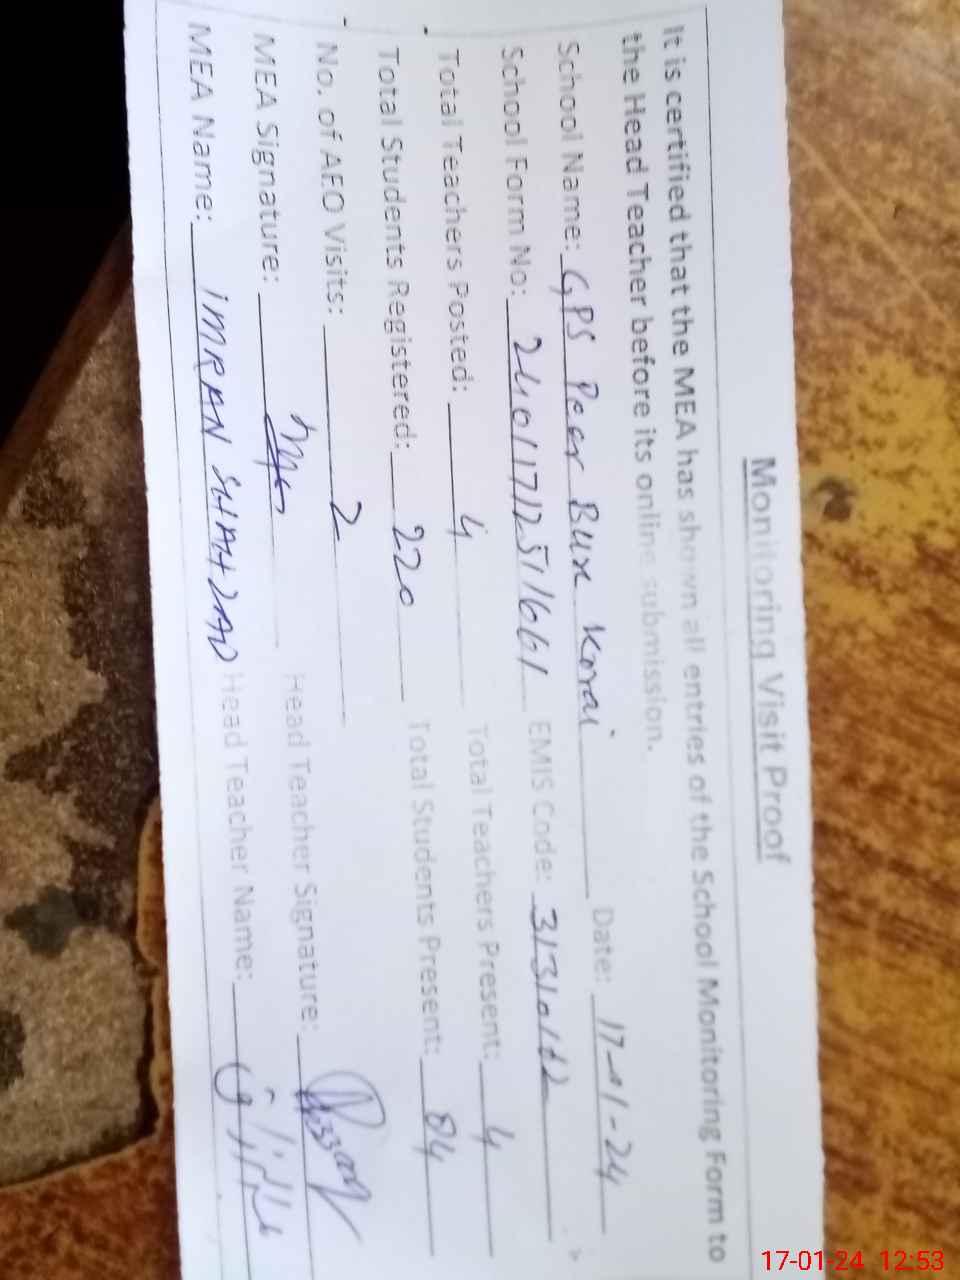 Monitoring Visit Proof
It is certified that the MEA has shown all entries of the School Monitoring Form to
the Head Teacher before its online submission.
Date: 17-01-24
School Name: GPS Peer Bux Korai
School Form No: EMIS Code:
Total Teachers Posted: 4 Total Teachers Present: 4
Total Students Registered: 220 Total Students Present: 84
No. of AEO Visits: 2
MEA Signature: Head Teacher Signature:
MEA Name: IMRAN SHAHZAD Head Teacher Name:
17-01-24 12:53